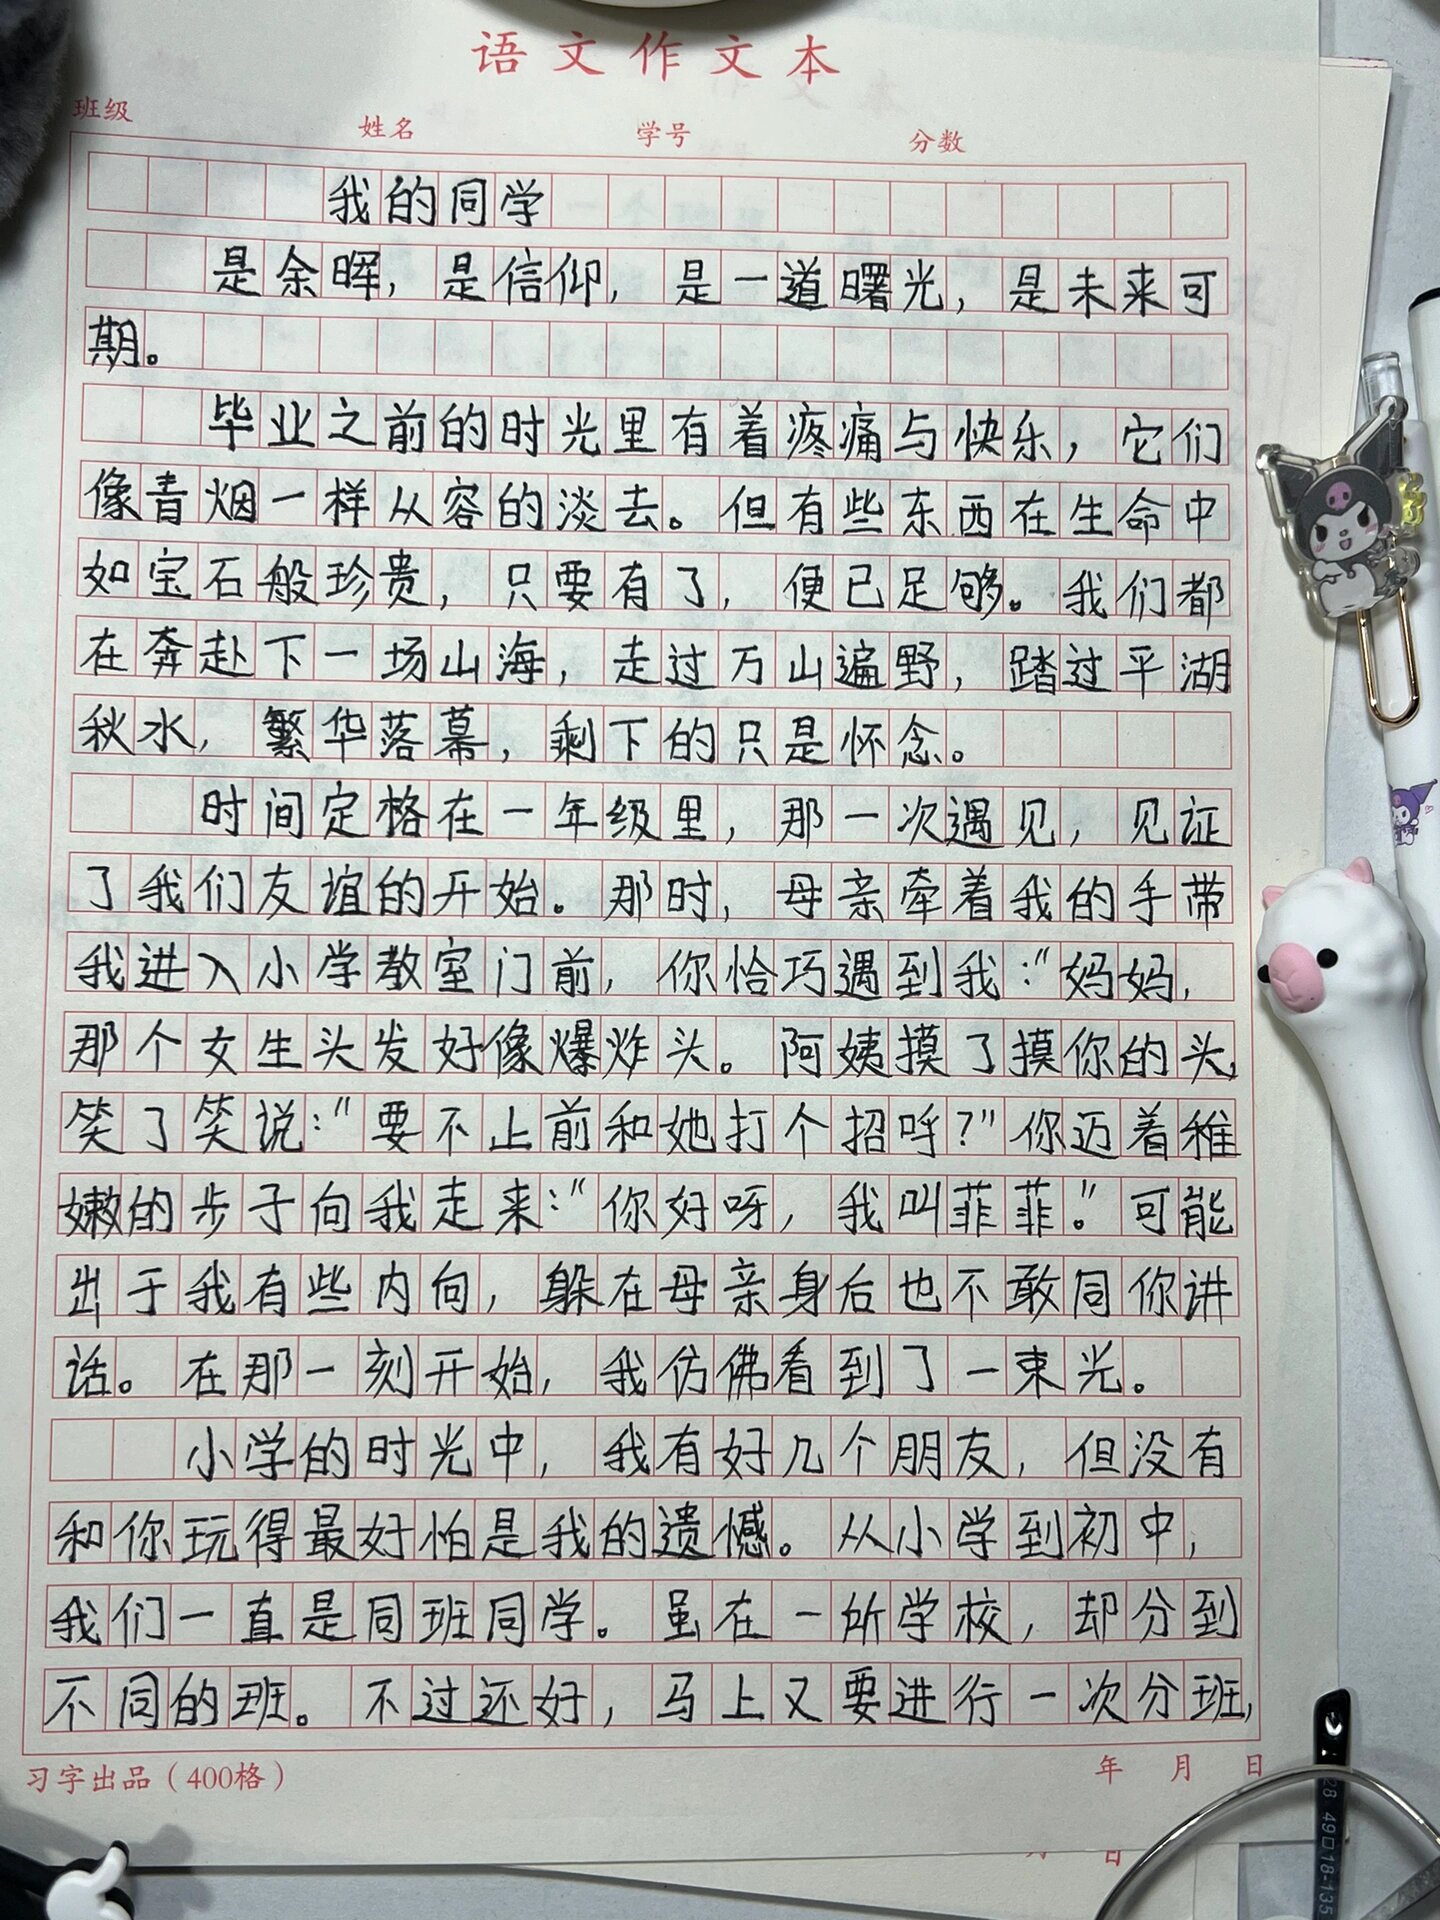 语文作文本
班级 姓名 学号 分数
我的同学
是余晖，是信仰，是一道曙光，是未来可
期。
毕业之前的时光里有着疼痛与快乐，它们
像青烟一样从容的淡去。但有些东西在生命中
如宝石般珍贵，只要有了，便已足够。我们都
在奔赴下一场山海，走过万山遍野，踏过平湖
秋水，繁华落幕，剩下的只是怀念。
时间定格在一年级里，那一次遇见，见证
了我们友谊的开始。那时，母亲牵着我的手带
我进入小学教室门前，你恰巧遇到我："妈妈，
那个女生头发好像爆炸头。阿姨摸了摸你的头，
笑了笑说："要不上前和她打个招呼？"你迈着稚
嫩的步子向我走来："你好呀，我叫菲菲。"可能
出于我有些内向，躲在母亲身后也不敢同你讲
话。在那一刻开始，我仿佛看到了一束光。
小学的时光中，我有好几个朋友，但没有
和你玩得最好怕是我的遗憾。从小学到初中，
我们一直是同班同学。虽在一所学校，却分到
不同的班。不过还好，马上又要进行一次分班，
习字出品（400格） 年 月 日
月 日
28 49口18-135